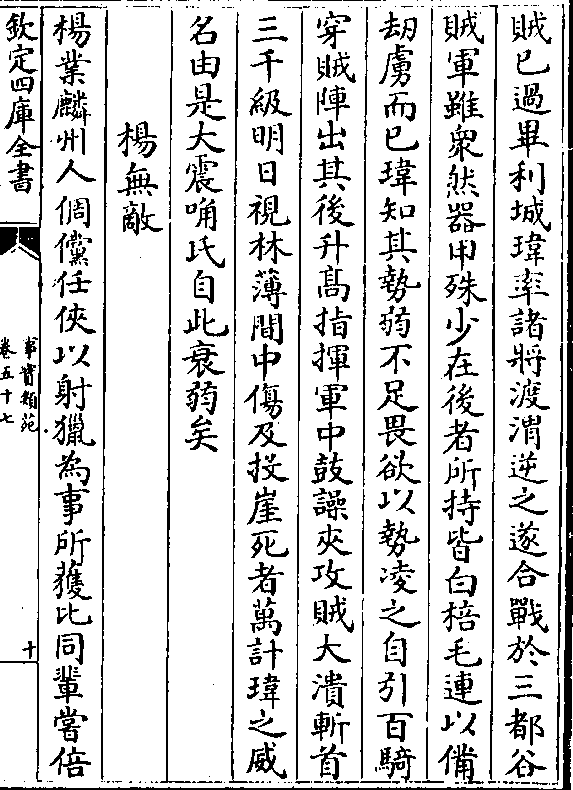 賊已過畢利城瑋率諸將渡渭逆之遂合戰於三都谷
賊軍雖衆然器甲殊少在後者所持皆白棓毛連以備
刼虜而已瑋知其勢弱不足畏欲以勢凌之自引百騎
穿賊陣出其後升髙指揮軍中鼓譟夾攻賊大潰斬首
三千級明日視林薄間中傷及投崖死者萬計瑋之威
名由是大震唃氏自此衰弱矣
楊無敵
楊業麟州人倜儻任俠以射獵為事所獲比同輩嘗倍
欽定四庫全書
事實類苑
卷五十七
十